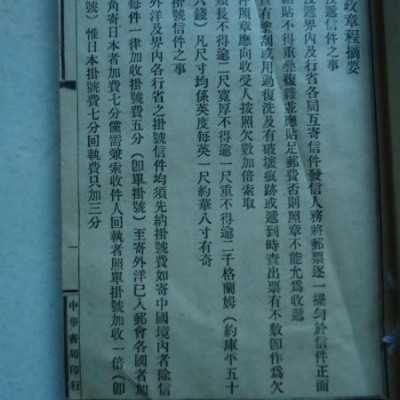 政章程摘要
投遞信件之事
投遞界內及行省各局互寄信件發信人務將郵票逐一攞勻於信件正面
粘貼不得重疊複雜並應貼足郵費否則照章不能允為收遞
有塗漬或用過復洗及有破壞痕跡或遞到時查出票有不敷卽作為欠
件照章應向收受人按照欠數加倍索取
須長不得逾二尺寬厚不得逾一尺重不得逾二千格蘭姆（約庫平五十
六錢）凡尺寸均係英度每英一尺約華八寸有奇
掛號信件之事
外洋及界內各行省之掛號信件均須先納掛號費如寄中國境內者除信
每件一律加收掛號費五分（卽單掛號）至寄外洋已入郵會各國者加
角寄日本者加費七分儻需兼索收件人回執者照單掛號加收一倍（卽
號）惟日本掛號費七分回執費只加三分
一
中華書局印行